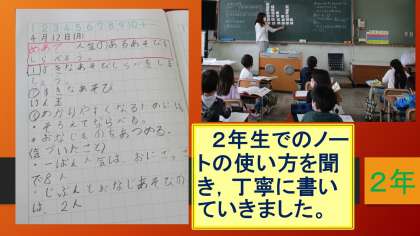 1 2 3 4 5 6 7 8 9 10
4月12日(月)
めあて 人生のあるあそび
しらべよう。
すきなあそびしらべをしま
しょう。
①すきなあそび
けん玉
②わかりやすくなるために
・そろえてならべる。
・おなじものをあつめる。
(気づいたこと)
・一ばん人気は、おに
で8人
・じぶんとおなじあそびの
は、2人
2年生でのノー
トの使い方を聞
き，丁寧に書い
ていきました。
2年